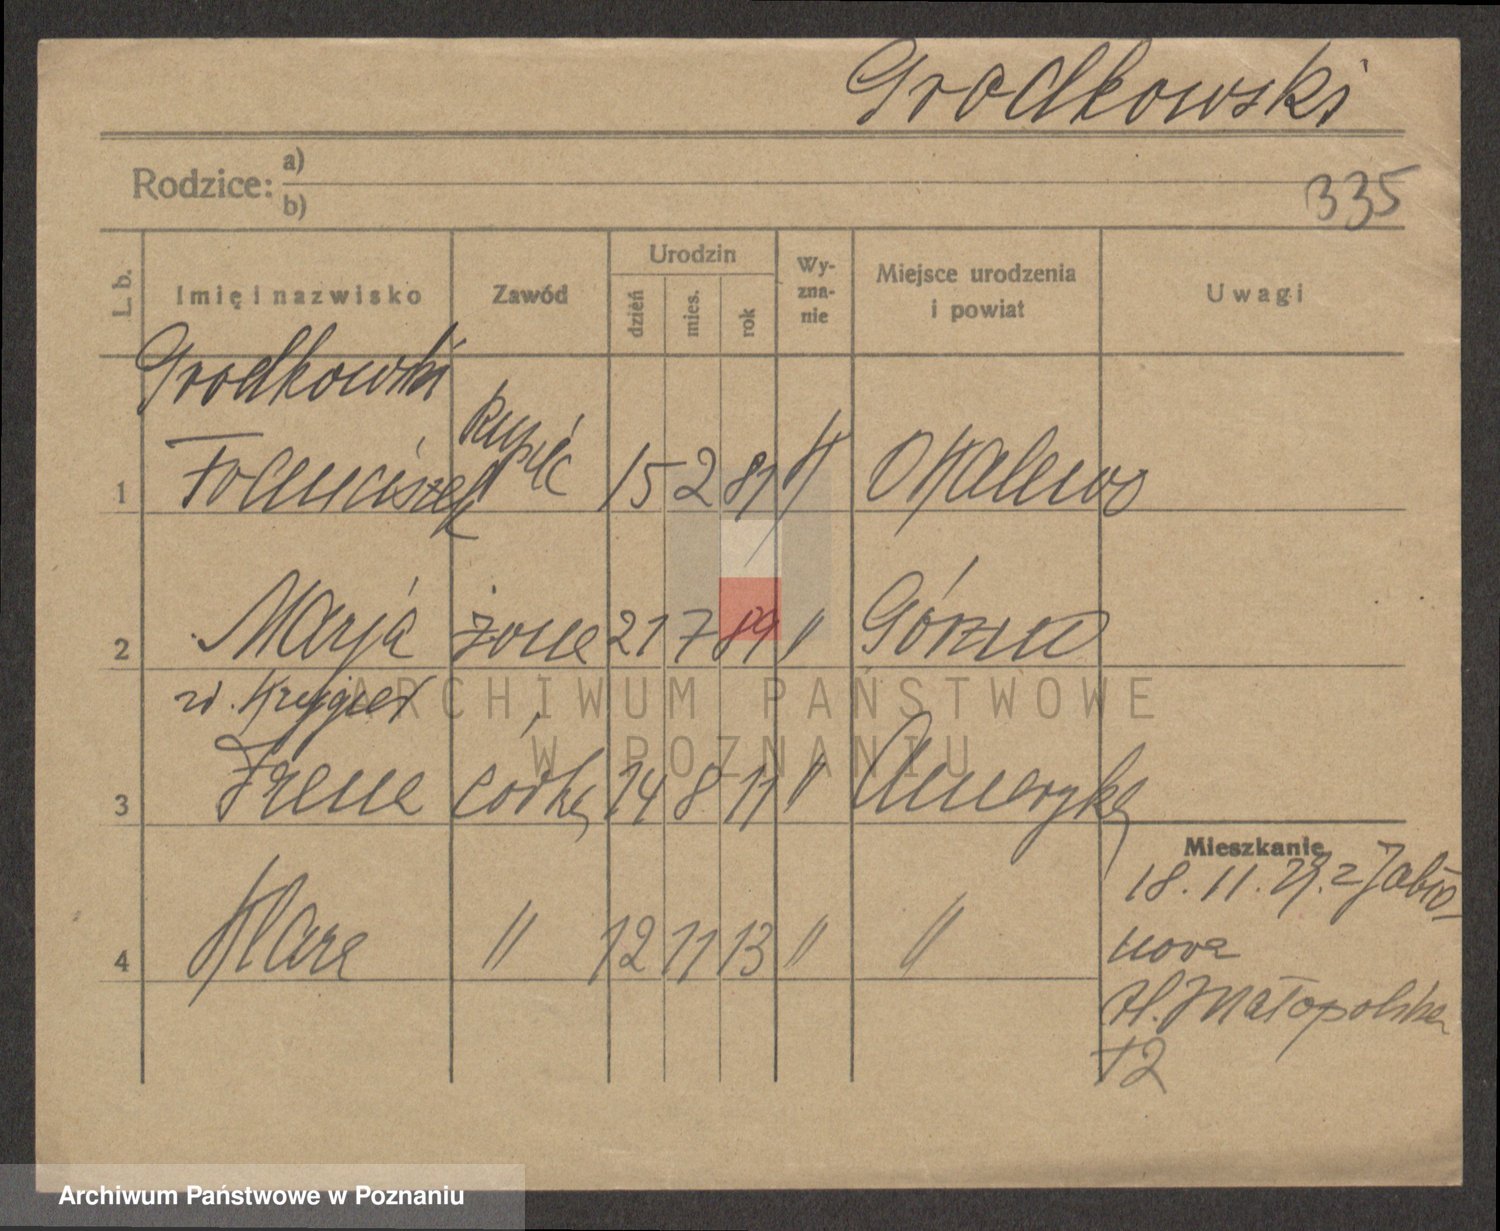 Grodkowski
Rodzice: a)
b)
335
L. b.
Imię i nazwisko
Zawód
Urodzin
dzień
mies.
rok
Wy-
zna-
nie
Miejsce urodzenia
i powiat
Uwagi
Grodkowski
1 Franciszek kupiec 15 2 81 K Okalewo
2 Marja żona 21 7 89 " Górzno
z d. Krygier
3 Irena córka 14 8 11 " Ameryka
4 Klara " 12 11 13 " "
Mieszkanie
18.11.29. z Jabło-
nowa
Małopolska
12
ARCHIWUM PAŃSTWOWE
W POZNANIU
Archiwum Państwowe w Poznaniu